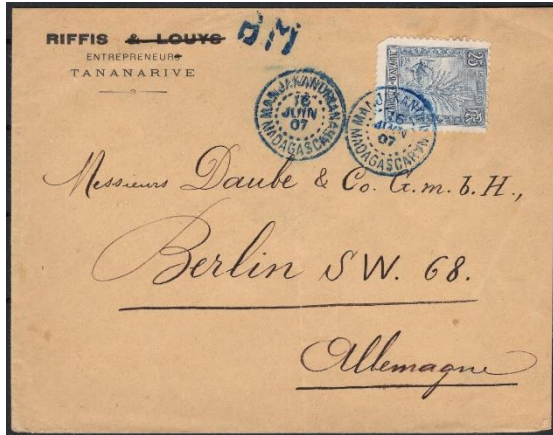 RIFFIS & LOUYS
ENTREPRENEURS
TANANARIVE
BM
MANJAKANDRIANA
16
JUIN
07
MADAGASCAR
MANJAKANDRIANA
16
JUIN
07
MADAGASCAR
25
25
Messieurs Daube & Co. G.m.b.H.,
Berlin SW. 68.
Allemagne